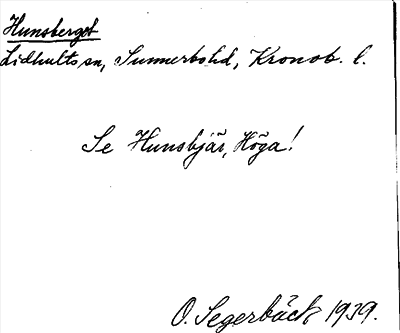 Hunsberget
Lidhults sn, Sunnerbo hd, Kronob. l.
Se Hunsbjär, Höga!
O. Segerbäck 1939.